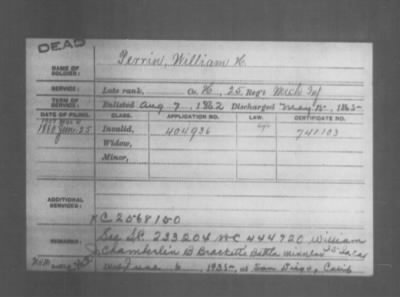 DEAD
NAME OF SOLDIER: Perrin, William H.
SERVICE: Late rank, Co. H, 25 Reg't Mich Inf
TERM OF SERVICE: Enlisted Aug 7, 1862 Discharged May 15, 1863
DATE OF FILING. CLASS. APPLICATION NO. LAW. CERTIFICATE NO.
1880 Jun. 25 Invalid, 404936 741103
Widow,
Minor,
ADDITIONAL SERVICES:
XC 2568150
REMARKS: See 233204 444920 William
Chamberlin Brackett Minnesota
6, 1935, at San Diego, Calif